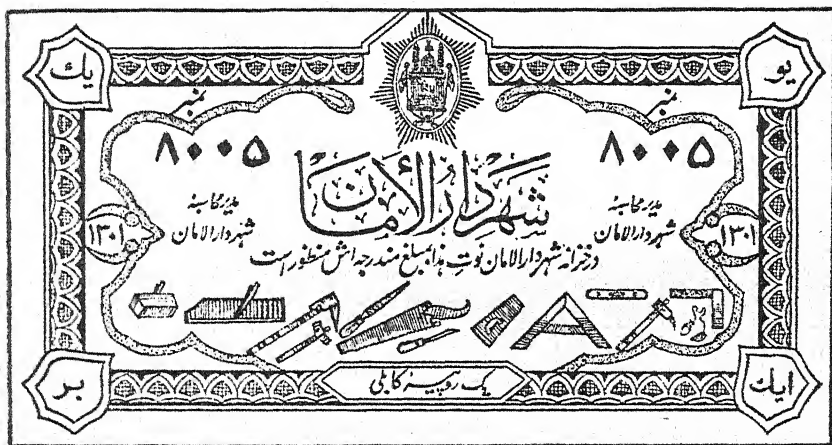 یو
یك
نمبر
نمبر
۸۰۰۵
۸۰۰۵
شهر دارالأمان
مدیر محاسبه
شهر دارالامان
مدیر محاسبه
شهر دارالامان
۱۳۰۱
۱۳۰۱
در خزانه شهر دارالامان نوت هذا بمبلغ مندرجه اش منظور است
یک روپیه کابلی
ایك
بر